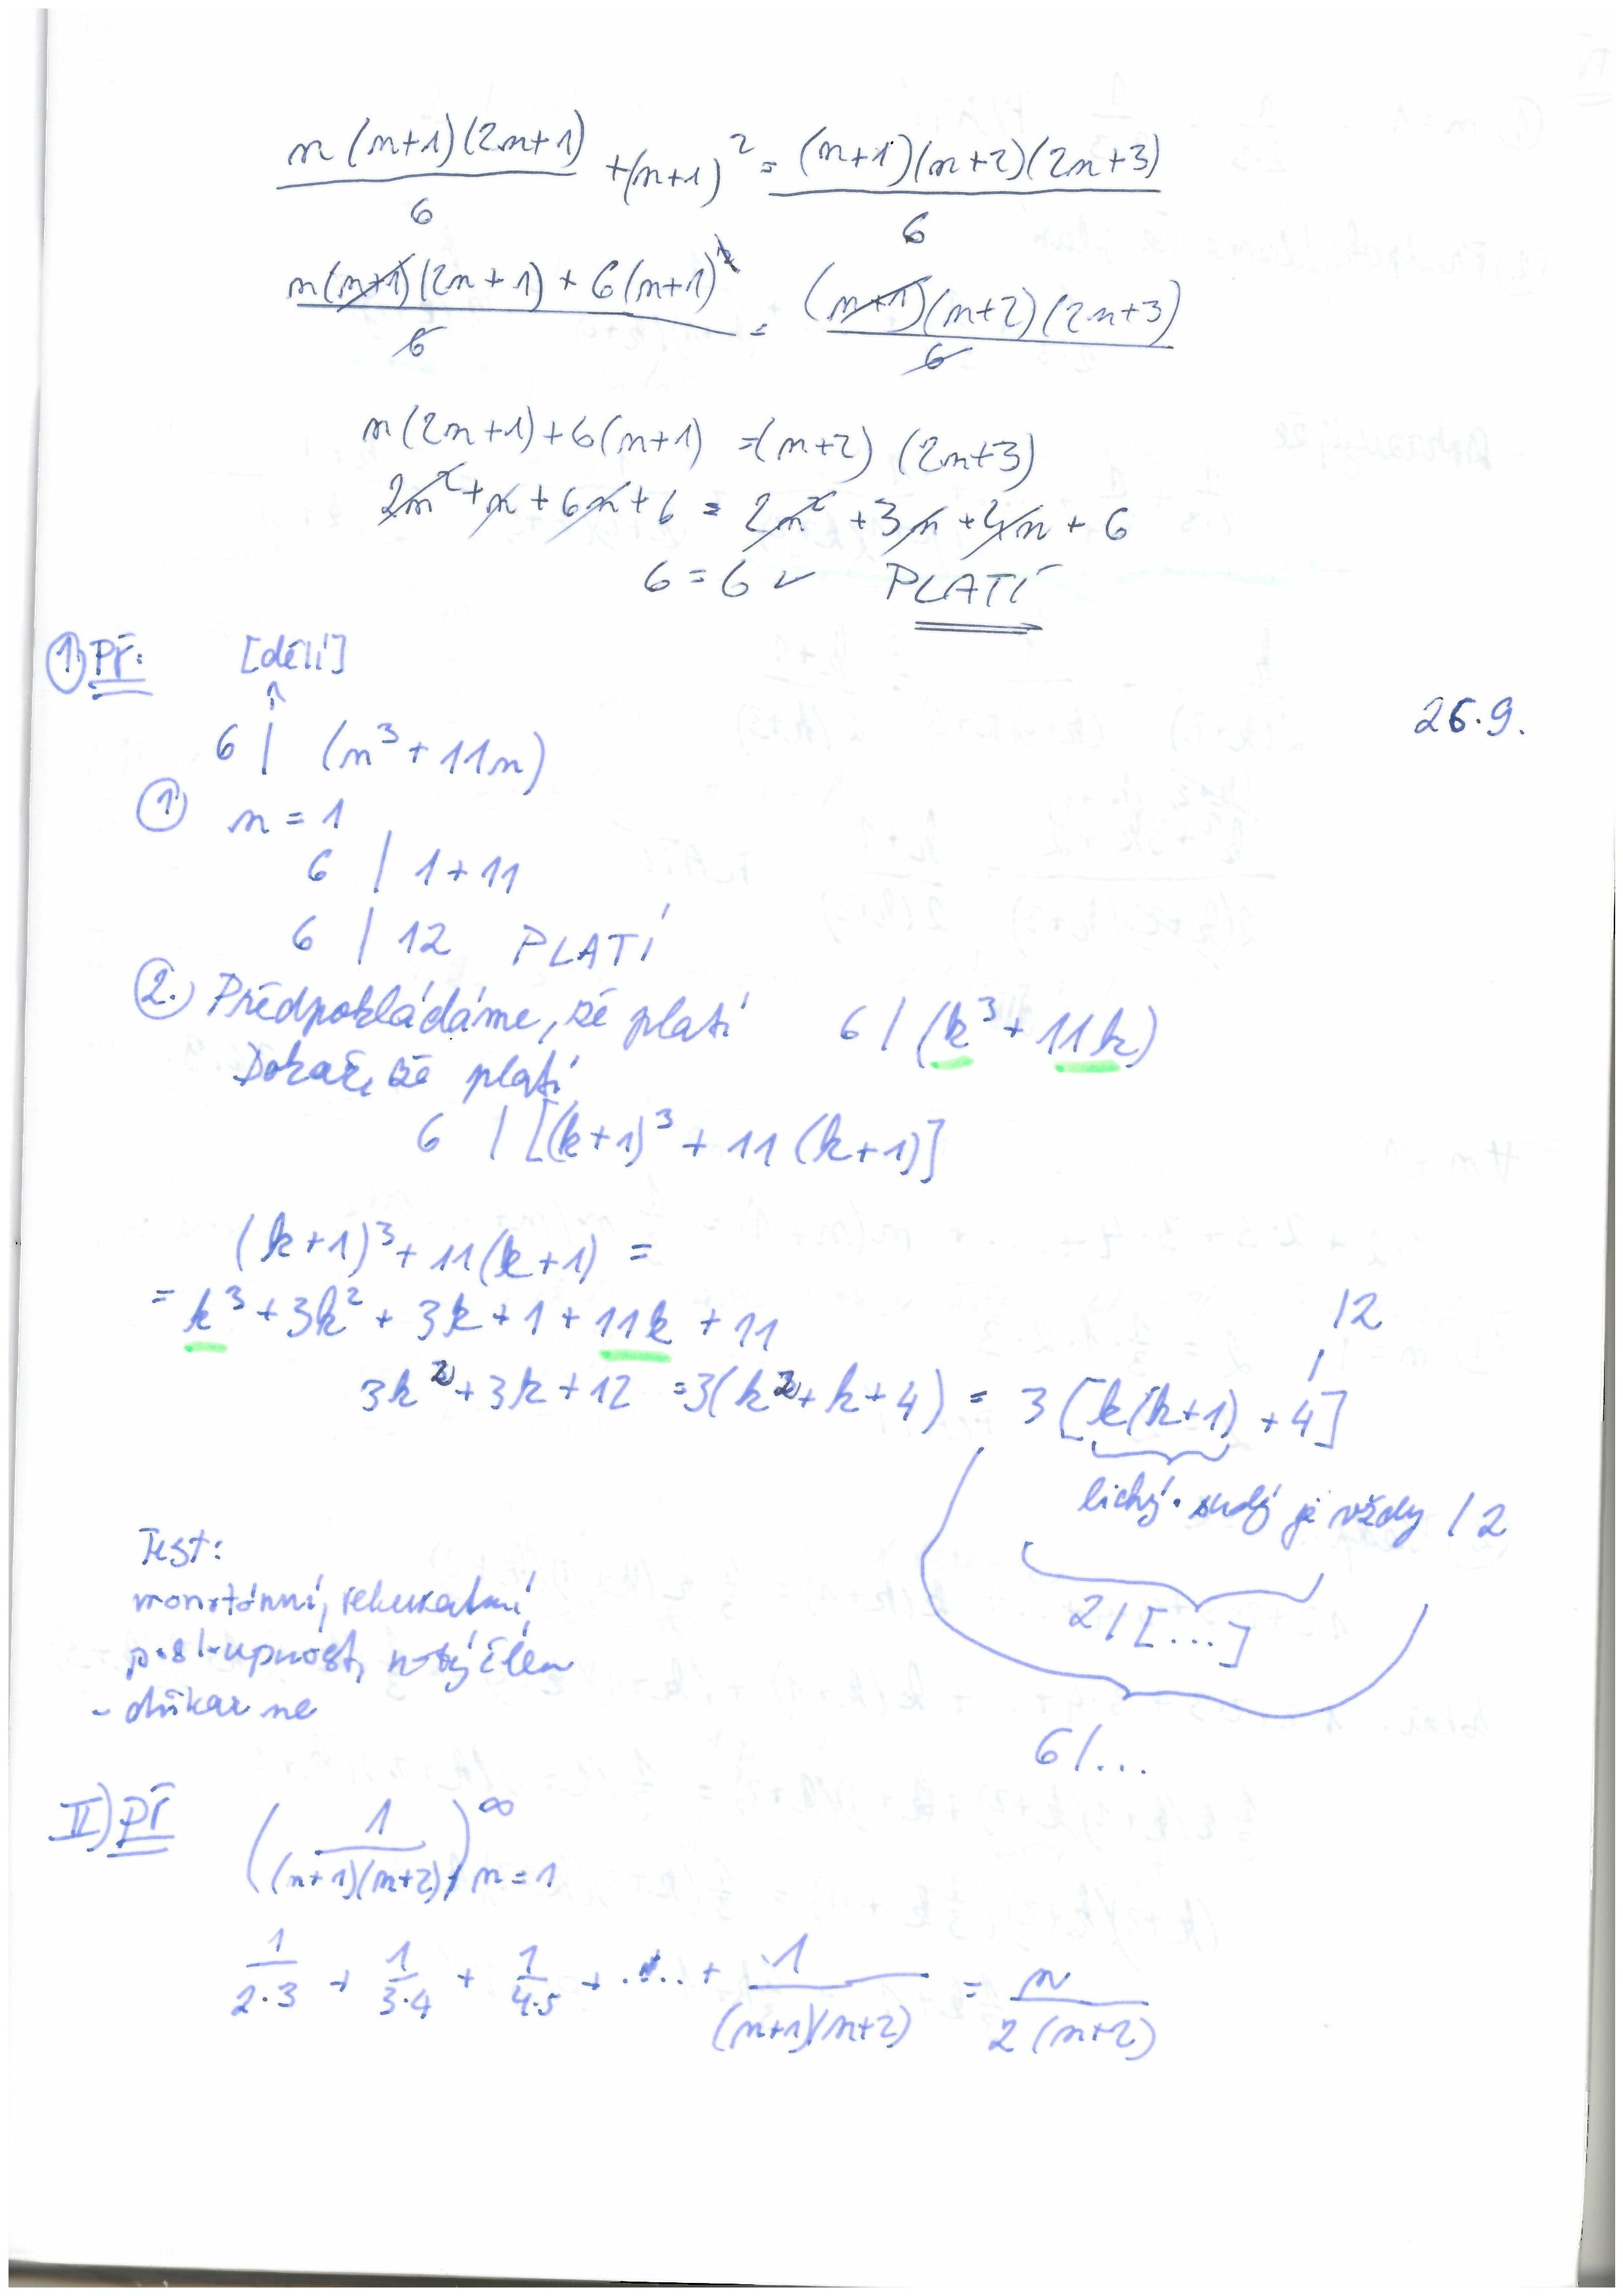 n(n+1)(2n+1)/6 + (n+1)² = (n+1)(n+2)(2n+3)/6
n(n+1)(2n+1) + 6(n+1)²/6 = (n+1)(n+2)(2n+3)/6
n(2n+1)+6(n+1) = (n+2)(2n+3)
2n² + n + 6n + 6 = 2n² + 3n + 4n + 6
6 = 6 ✓ PLATÍ
① Př: [dělí]
26.9.
6 | (n³ + 11n)
① n = 1
6 | 1 + 11
6 | 12 PLATÍ
②. Předpokládáme, že platí 6 | (k³ + 11k)
Dokaž, že platí
6 | [(k+1)³ + 11(k+1)]
(k+1)³ + 11(k+1) =
= k³ + 3k² + 3k + 1 + 11k + 11
12
3k² + 3k + 12 = 3(k² + k + 4) = 3[k(k+1) + 4]
lichý · sudý je vždy / 2
2 | [...]
6 | ...
Test:
monotónní, rekurentní
posloupnost, n-tý člen
- důkaz ne
II) Př (1/((n+1)(n+2)))^∞ n=1
1/2·3 + 1/3·4 + 1/4·5 + .... + 1/(n+1)(n+2) = n/2(n+2)